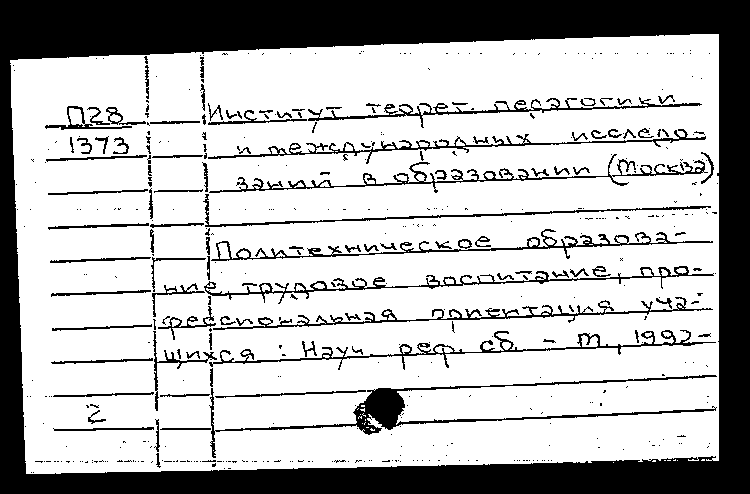 П28
1373
Институт теорет. педагогики
и международных исследо-
ваний в образовании (Москва).
Политехническое образова-
ние, трудовое воспитание, про-
фессиональная ориентация уча-
щихся : Науч. реф. сб. - М., 1992-
2